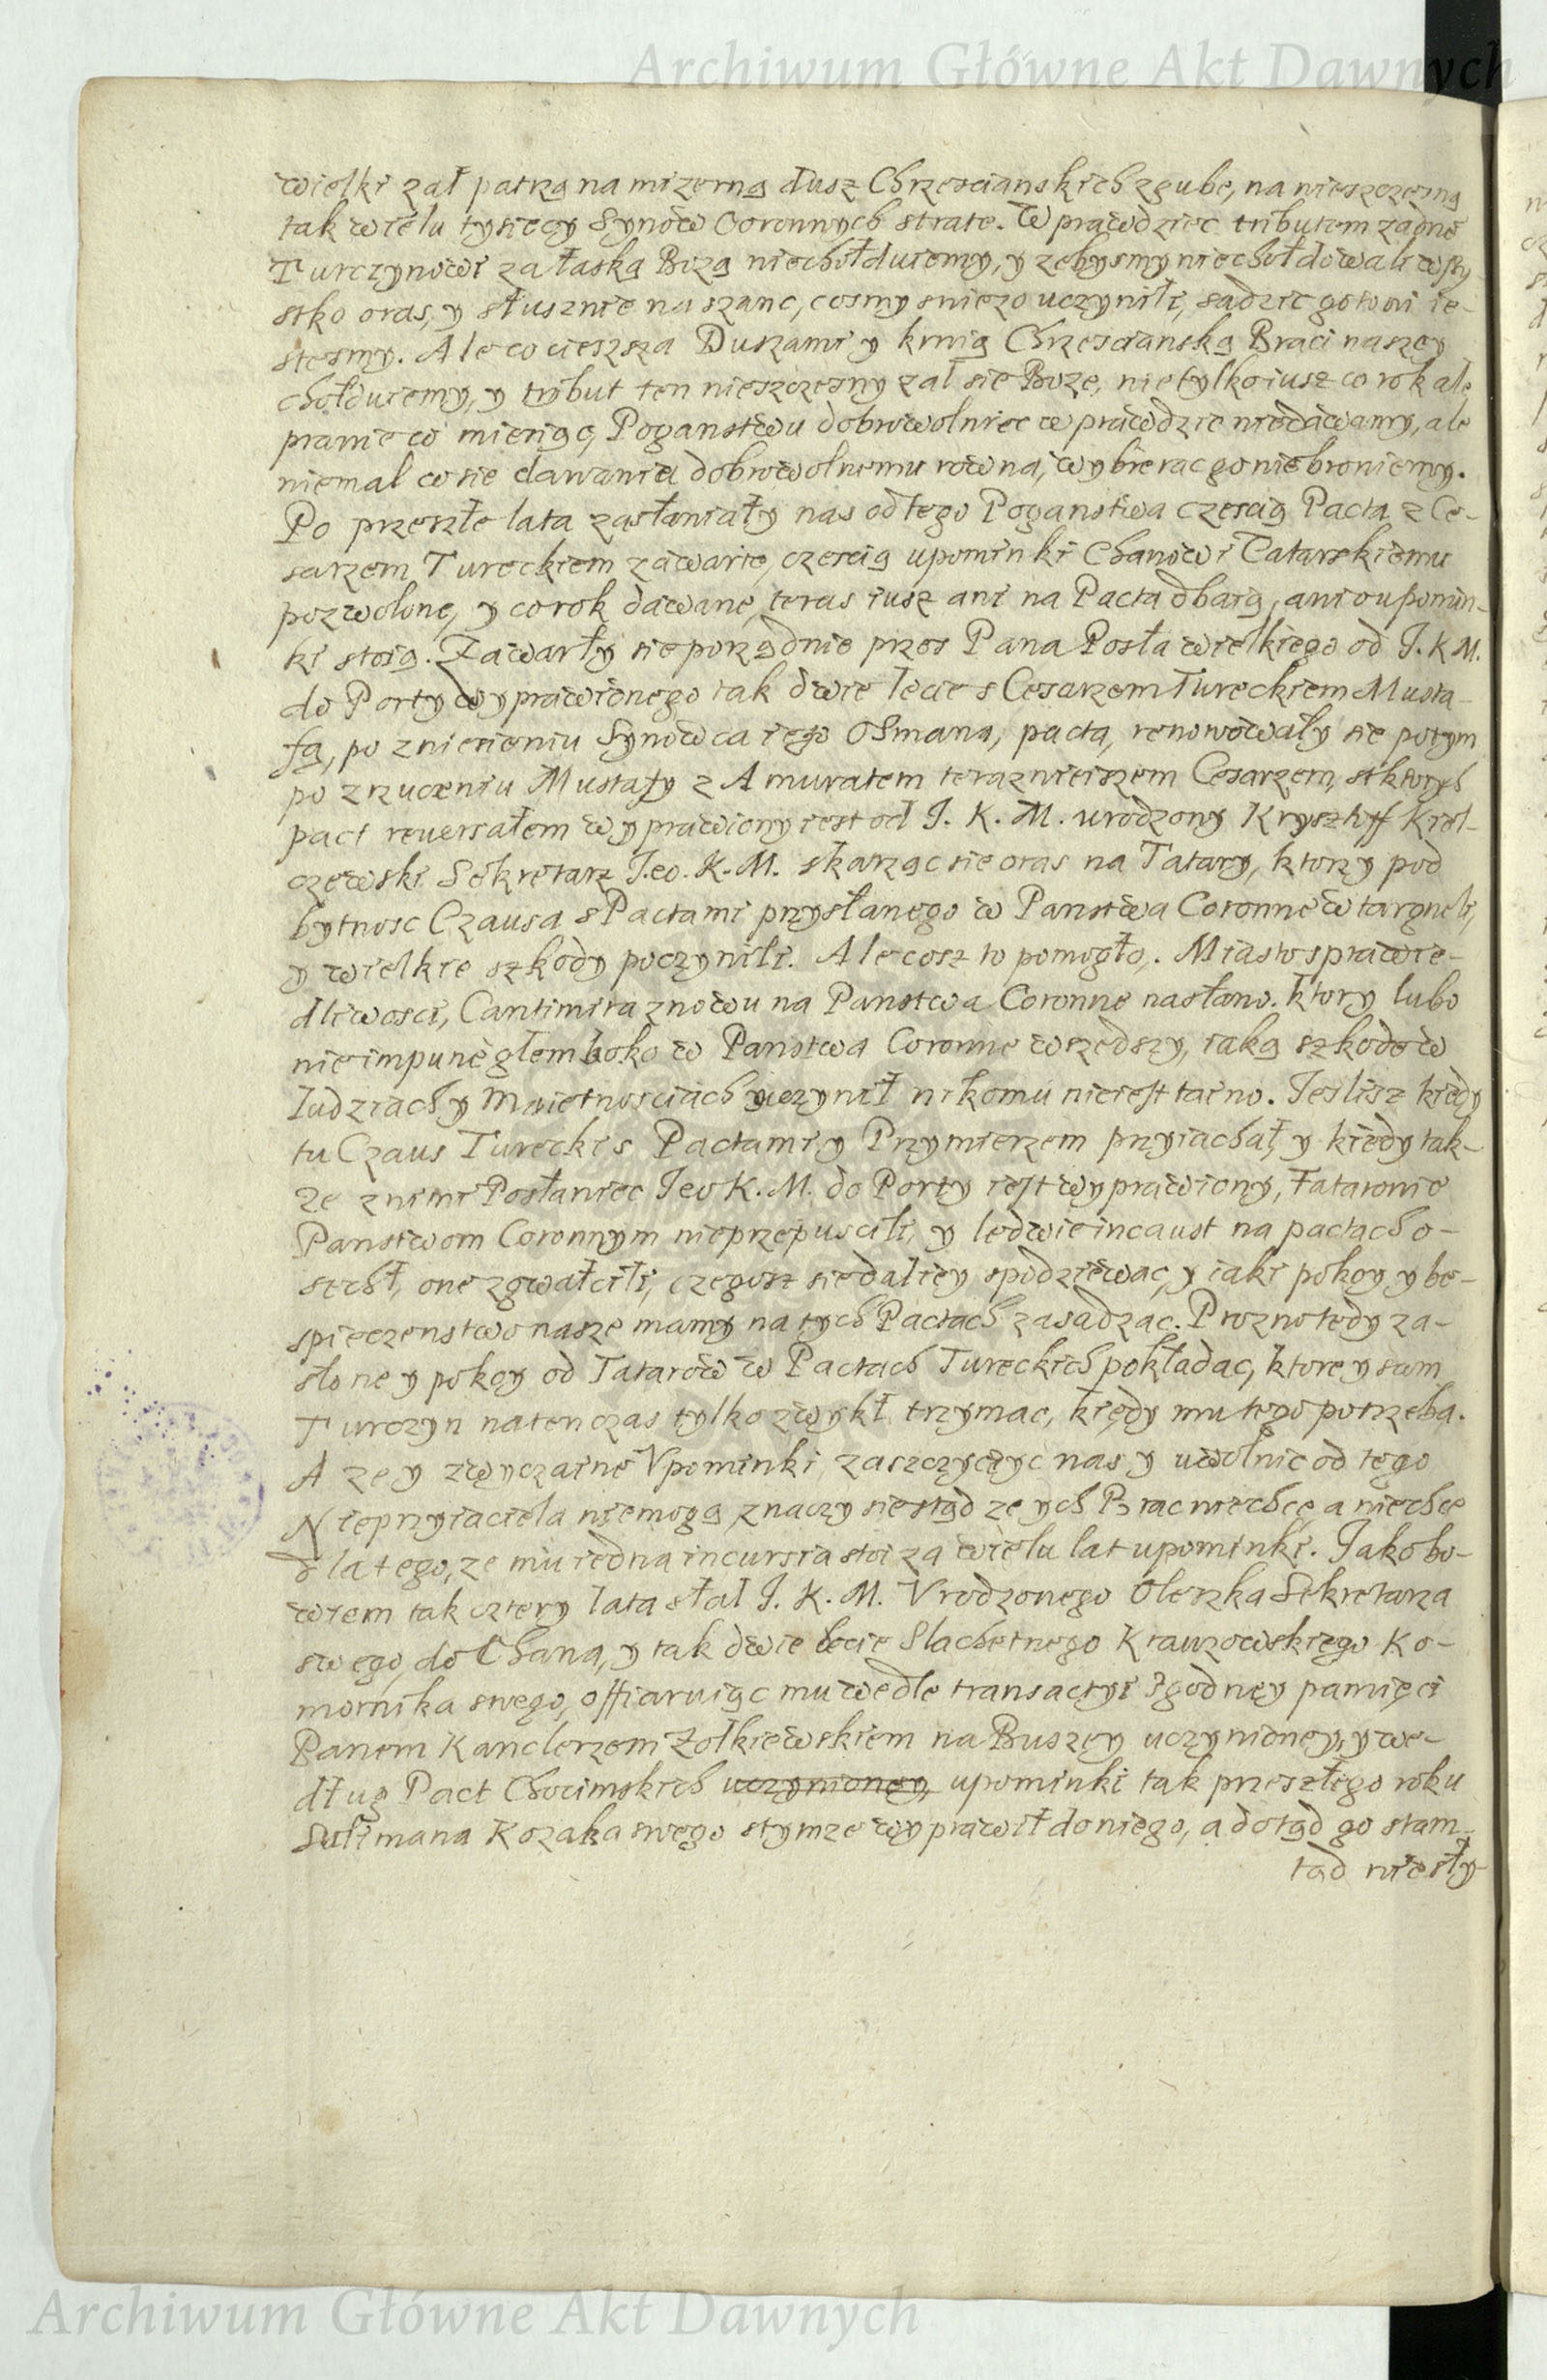 Archiwum Główne Akt Dawnych
wielki zal patrzą na mizerną dusz Chrzescianskich zgubę, na nieszczesną
tak wielu tysięcy Synow Coronnych stratę. W prawdziec tributem zadne
Turczynowi za łaską Bozą niechołduiemy, y zebysmy niechołdowali wszy-
stko oras, y słusznie na szanc, cosmy sniego uczynili, sadzic gotowi ie-
stesmy. Ale co cieszsza Duszami y krwią Chrzescianską Braci naszey
chołduiemy, y trybut ten nieszczesny zal się Boze, nie tylko iusz co rok ale
prawie co miesiąc, Poganstwu dobrowolniec w prawdzie niedawamy, ale
niemal co sie dawania dobrowolnemu rowna, wybierac go niebroniemy.
Po przeszłe lata zasłaniały nas od tego Poganstwa częscią Pacta z Ce-
sarzem Tureckiem zawarte, częscią upominki Chanowi Tatarskiemu
pozwolone, y co rok dawane, teras iusz ani na Pacta dbaią, ani o upomin-
ki stoią. Zawarły sie porządnie przes Pana Posła wielkiego od J. K. M.
do Porty wyprawionego tak dwie lecie s Cesarzem Tureckiem Musta-
fą, po zniesieniu Synowca iego Osmana, pacta, renowowały się potym
po zrzuceniu Mustafy z Amuratem terazneiszem Cesarzem, s ktorych
pact reuersałem wyprawiony iest od J. K. M. urodzony Krysztoff Krol-
czewski Sekretarz Jeo. K. M. skarząc sie oras na Tatary, ktorzy pod
bytnosc Czausa s Pactami przysłanego w Panstwa Coronne wtargneli,
y wielkie szkody poczynili. Ale cosz to pomogło. Miasto sprawie-
dliwosci, Cantimira znowu na Panstwa Coronne nasłano. Ktory lubo
nie impunè głemboko w Panstwa Coronne wszedszy, iaką szkodę w
ludziach y Maietnosciach uczynił nikomu nieiest taino. Jeslisz kiedy
tu Czaus Turecki s Pactami y Przymierzem przyiachał, y kiedy tak-
ze znimi Posłaniec Jeo K. M. do Porty iest wyprawiony, Tatarowie
Panstwom Coronnym nieprzepuscili, y ledwie incaust na pactach o-
sechł, one zgwałcili, czegosz sie daliey spodziewac, y iaki pokoy y be-
spieczenstwo nasze mamy na tych Pactach zasadzac. Prozno tedy za-
słonę y pokoy od Tatarow w Pactach Tureckich pokładac, ktore y sam
Turczyn na ten czas tylko zwykł trzymac, kiedy mu tego potrzeba.
A ze y zwyczaine Upominki zaszczycyc nas y uwolnic od tego
Nieprzyiaciela niemogą znaczy sie stąd ze ych Brac niechce, a niechce
dla tego, ze mu iedna incursia stoi za wielu lat upominki. Jako bo-
wiem tak cztery lata słal J. K. M. Vrodzonego Oleszka Sekretarza
swego, do Chana, y tak dwie lecie Slachetnego Krauzowskiego Ko-
mornika swego, offiaruiąc mu wedle transactyi Zgodney pamięci
Panem Kanclerzem Zołkiewskiem na Buszey uczynioney, y we-
dług Pact Chocimskich uczynioney, upominki tak przeszłego roku
Sulimana Kozaka swego stymze wyprawił do niego, a dotąd go stam-
tąd niesły-
Archiwum Główne Akt Dawnych